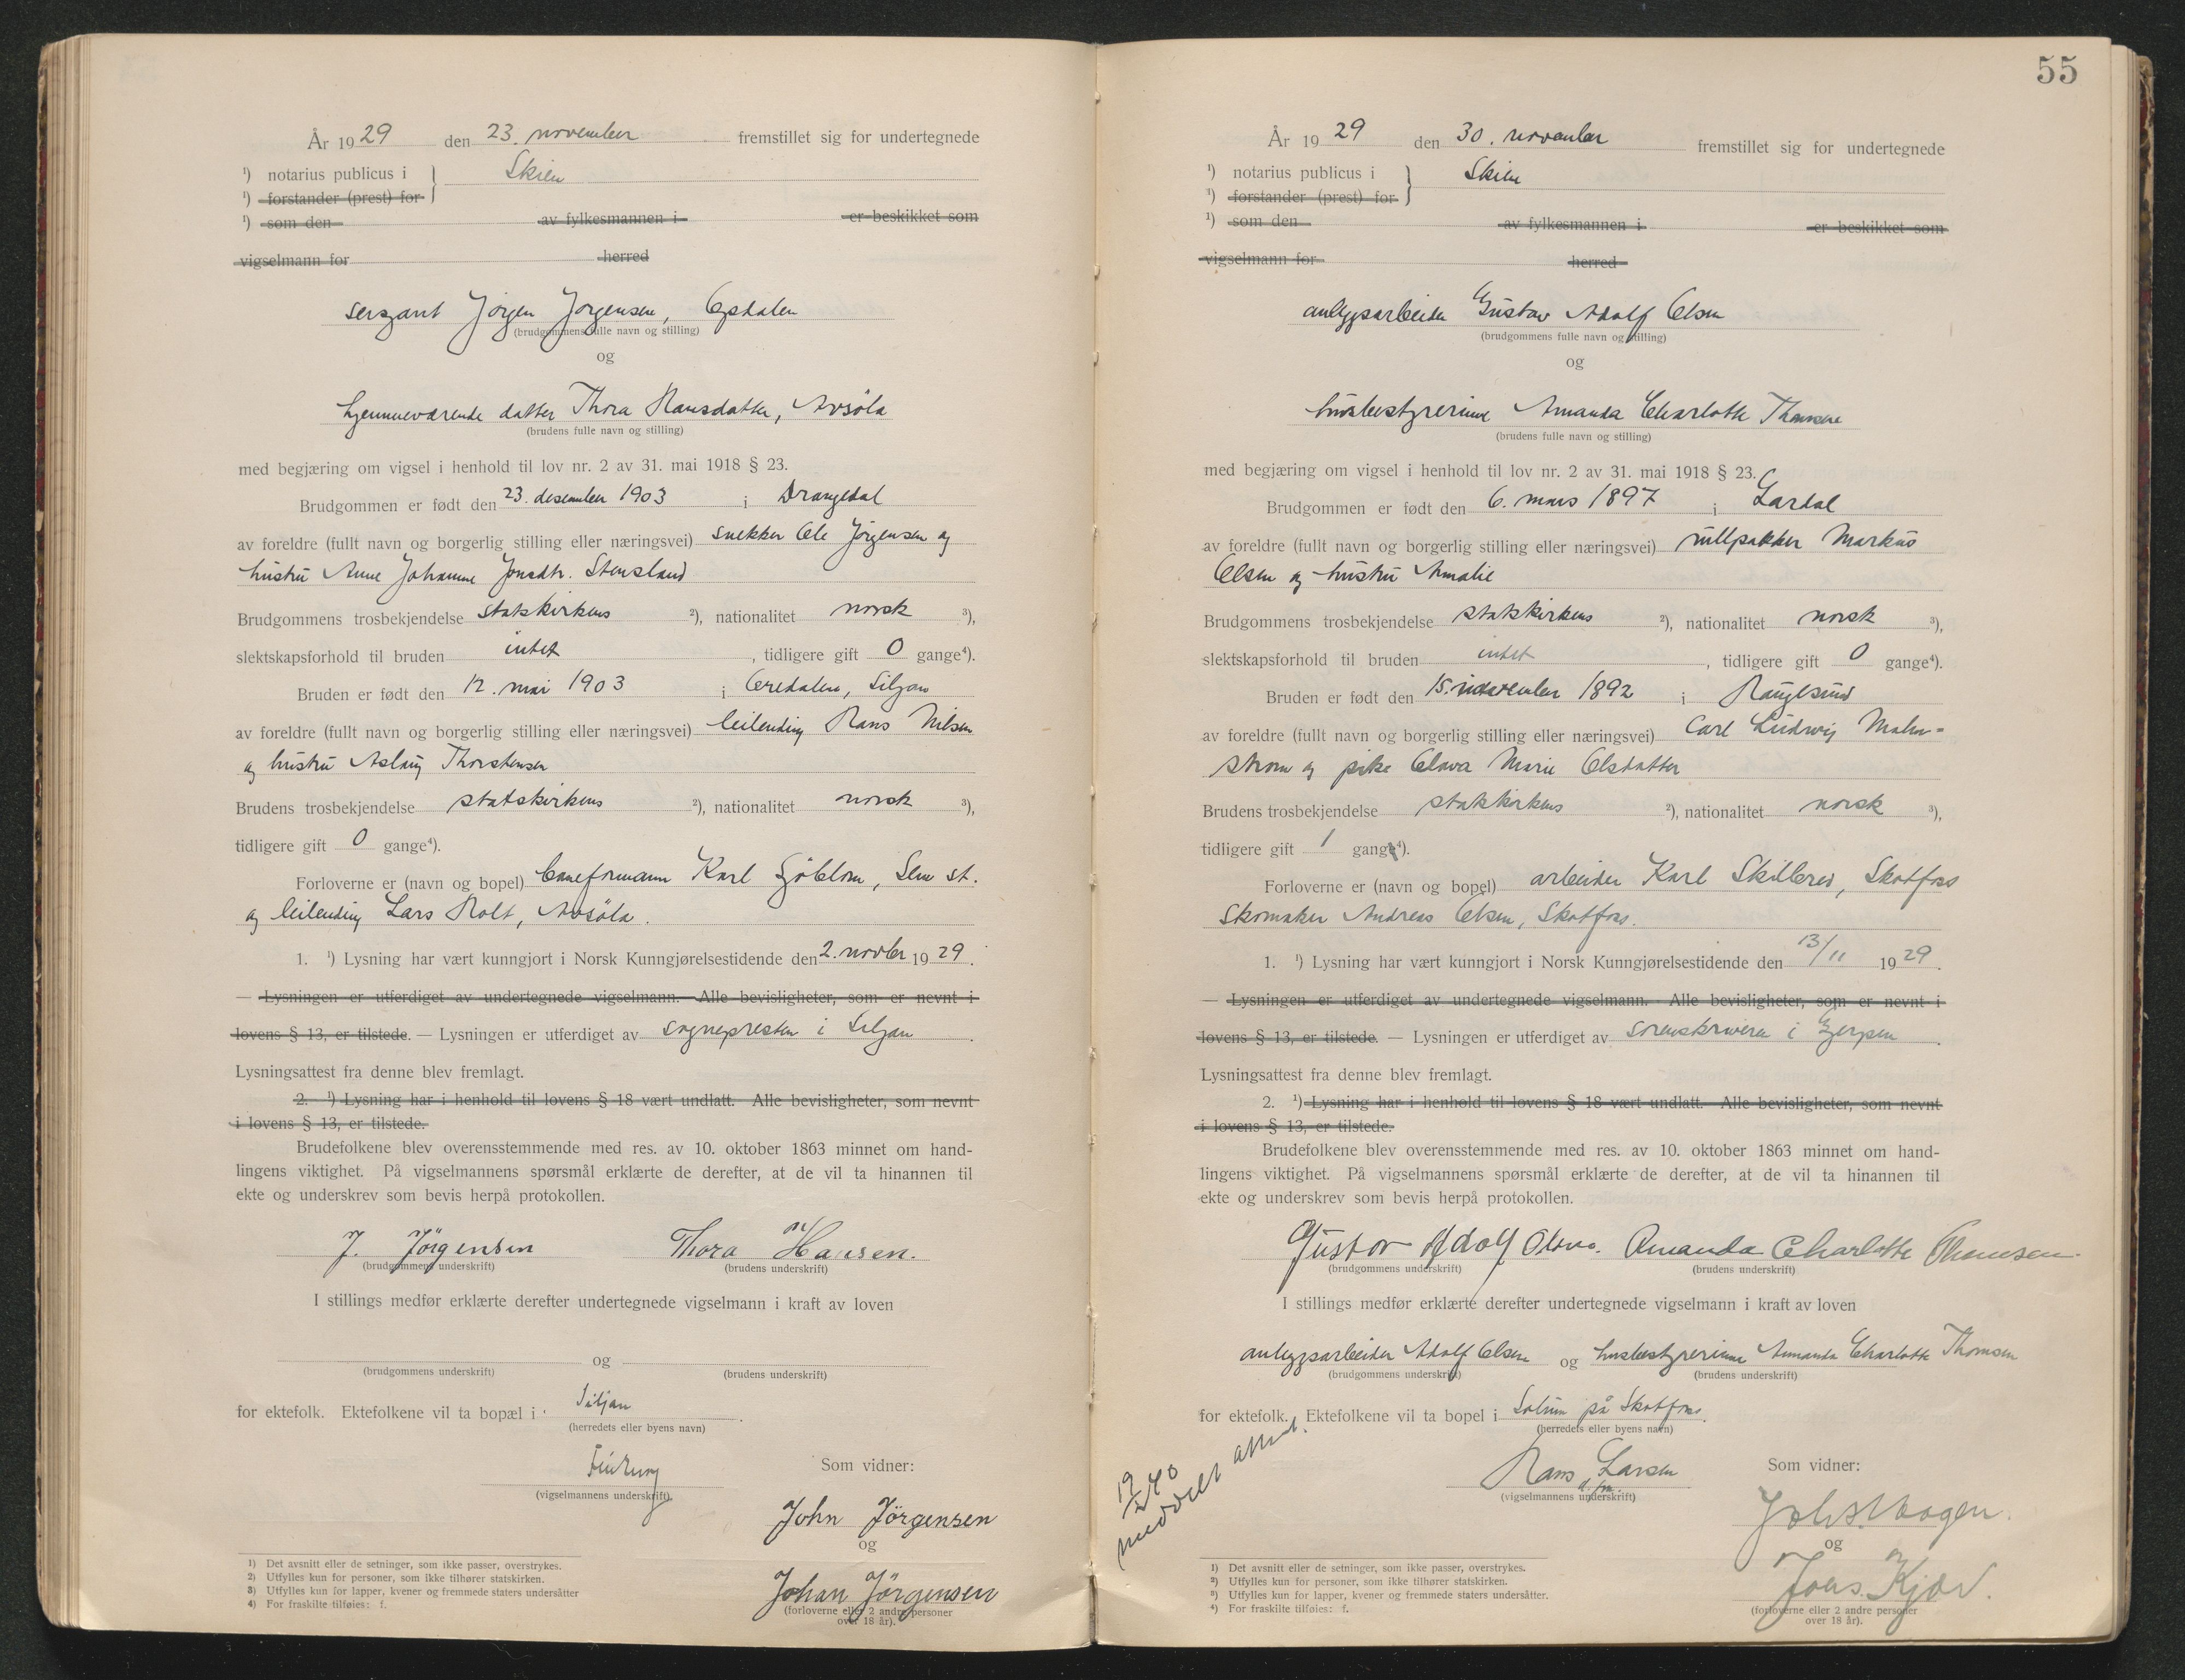 År 1929 den 23. november fremstillet sig for undertegnede
¹) notarius publicus i } Skien
¹) forstander (prest) for
¹) som den av fylkesmannen i er beskikket som
vigselmann for herred
sersjant Jörgen Jörgensen, Opdalen
(brudgommens fulle navn og stilling)
og
hjemmeværende datter Thora Hansdatter,
(brudens fulle navn og stilling)
med begjæring om vigsel i henhold til lov nr. 2 av 31. mai 1918 § 23.
Brudgommen er født den 23. desember 1903 i Drangedal
av foreldre (fullt navn og borgerlig stilling eller næringsvei) snekker Ole Jörgensen og
hustru Anne Johanne Jonsdtr. Stensland
Brudgommens trosbekjendelse statskirkens ²), nationalitet norsk ³),
slektskapsforhold til bruden intet, tidligere gift 0 gange⁴).
Bruden er født den 12. mai 1903 i Siljan
av foreldre (fullt navn og borgerlig stilling eller næringsvei) leilending Hans Nilsen
og hustru Aslaug Thorstensen
Brudens trosbekjendelse statskirkens ²), nationalitet norsk ³),
tidligere gift 0 gange⁴).
Forloverne er (navn og bopel) Karl
og leilending Lars Holt,
1. ¹) Lysning har vært kunngjort i Norsk Kunngjørelsestidende den 2. novbr 1929.
— Lysningen er utferdiget av undertegnede vigselmann. Alle bevisligheter, som er nevnt i
lovens § 13, er tilstede. — Lysningen er utferdiget av sognepresten i Siljan.
Lysningsattest fra denne blev fremlagt.
2. ¹) Lysning har i henhold til lovens § 18 vært undlatt. Alle bevisligheter, som nevnt
i lovens § 13, er tilstede.
Brudefolkene blev overensstemmende med res. av 10. oktober 1863 minnet om hand-
lingens viktighet. På vigselmannens spørsmål erklærte de derefter, at de vil ta hinannen til
ekte og underskrev som bevis herpå protokollen.
J. Jörgensen Thora Hansen.
(brudgommens underskrift) (brudens underskrift)
I stillings medfør erklærte derefter undertegnede vigselmann i kraft av loven
og
(brudgommens underskrift) (brudens underskrift)
for ektefolk. Ektefolkene vil ta bopæl i Siljan.
(herredets eller byens navn)
Som vidner:
(vigselmannens underskrift)
John Jörgensen
og
Johan Jörgensen
(forloverne eller 2 andre personer
over 18 år).
¹) Det avsnitt eller de setninger, som ikke passer, overstrykes.
²) Utfylles kun for personer, som ikke tilhører statskirken.
³) Utfylles kun for lapper, kvener og fremmede staters undersåtter
⁴) For fraskilte tilføies: f.
55
År 1929 den 30. november fremstillet sig for undertegnede
¹) notarius publicus i } Skien
¹) forstander (prest) for
¹) som den av fylkesmannen i er beskikket som
vigselmann for herred
anleggsarbeider Gustav Adolf Olsen
(brudgommens fulle navn og stilling)
og
husbestyrerinne Amanda Charlotte Thomsen
(brudens fulle navn og stilling)
med begjæring om vigsel i henhold til lov nr. 2 av 31. mai 1918 § 23.
Brudgommen er født den 6. mars 1897 i Lardal
av foreldre (fullt navn og borgerlig stilling eller næringsvei) rullpakker Markus
Olsen og hustru Amalie
Brudgommens trosbekjendelse statskirkens ²), nationalitet norsk ³),
slektskapsforhold til bruden intet, tidligere gift 0 gange⁴).
Bruden er født den 15. november 1892 i Haugesund
av foreldre (fullt navn og borgerlig stilling eller næringsvei) Carl Ludvig Malm-
strøm og pike Olava Marie Olsdatter
Brudens trosbekjendelse statskirkens ²), nationalitet norsk ³),
tidligere gift 1 gang⁴).
Forloverne er (navn og bopel) arbeider Karl Skilbred, Skotfoss
Skomaker Andreas Olsen, Skotfoss.
1. ¹) Lysning har vært kunngjort i Norsk Kunngjørelsestidende den 13/11 1929.
— Lysningen er utferdiget av undertegnede vigselmann. Alle bevisligheter, som er nevnt i
lovens § 13, er tilstede. — Lysningen er utferdiget av sorenskriveren i Gjerpen.
Lysningsattest fra denne blev fremlagt.
2. ¹) Lysning har i henhold til lovens § 18 vært undlatt. Alle bevisligheter, som nevnt
i lovens § 13, er tilstede.
Brudefolkene blev overensstemmende med res. av 10. oktober 1863 minnet om hand-
lingens viktighet. På vigselmannens spørsmål erklærte de derefter, at de vil ta hinannen til
ekte og underskrev som bevis herpå protokollen.
Gustav Adolf Olsen. Amanda Charlotte Thomsen.
(brudgommens underskrift) (brudens underskrift)
I stillings medfør erklærte derefter undertegnede vigselmann i kraft av loven
anleggsarbeider Adolf Olsen og husbestyrerinne Amanda Charlotte Thomsen
(brudgommens underskrift) (brudens underskrift)
for ektefolk. Ektefolkene vil ta bopel i Solum på Skotfoss.
(herredets eller byens navn)
meddelt attest.
Hans Larsen Som vidner:
(vigselmannens underskrift)
og
Johs. Kjær.
(forloverne eller 2 andre personer
over 18 år).
¹) Det avsnitt eller de setninger, som ikke passer, overstrykes.
²) Utfylles kun for personer, som ikke tilhører statskirken.
³) Utfylles kun for lapper, kvener og fremmede staters undersåtter.
⁴) For fraskilte tilføies: f.